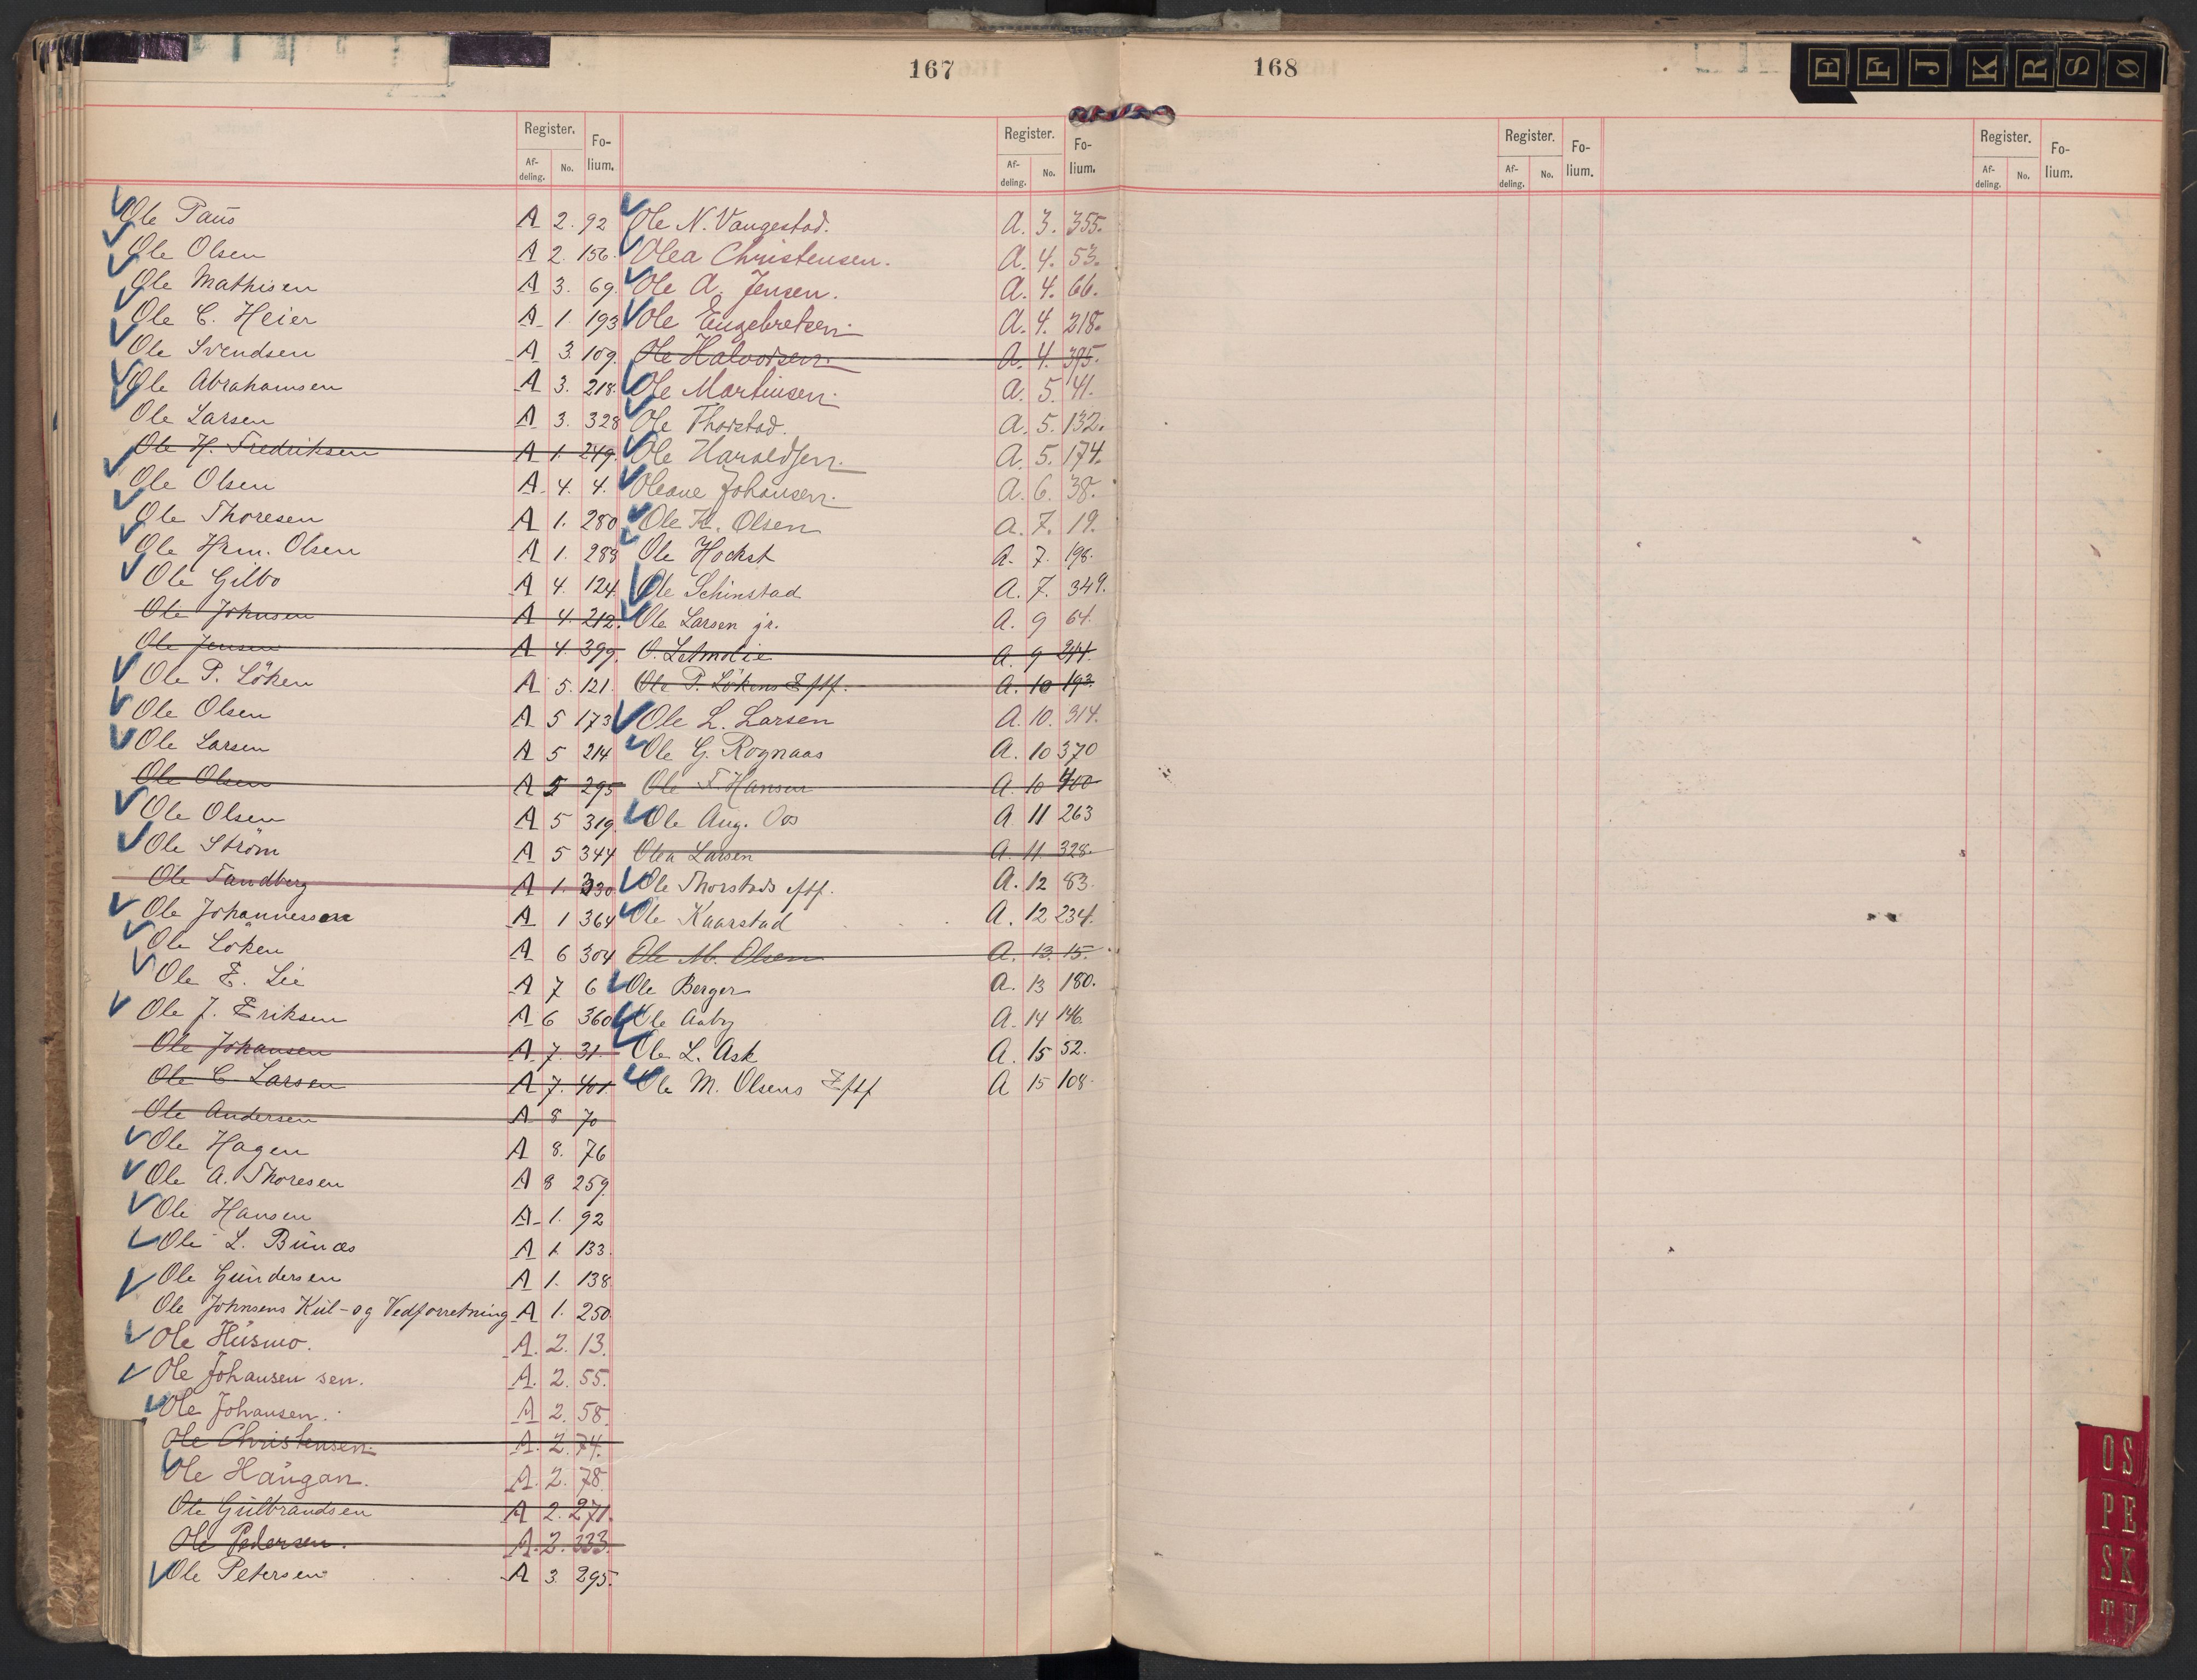 167
Register.
Fo-
lium.
Af-
deling.
No.
Register.
Fo-
lium.
Af-
deling.
No.
Ole Paus A 2. 92
Ole Olsen A 2. 156.
Ole Mathisen A 3. 69.
Ole C. Heier A 1. 193
Ole Svendsen A 3. 109.
Ole Abrahamsen A 3. 218.
Ole Larsen A 3. 328
Ole H. Fredriksen A 1. 249.
Ole Olsen A. 4. 4.
Ole Thoresen A 1. 280
Ole Hrm. Olsen A 1. 288
Ole Gilbo A 4. 124.
Ole Johnsen A 4. 212.
Ole Jensen A 4. 399.
Ole P. Löken A 5. 121.
Ole Olsen A 5 173
Ole Larsen A 5 214
Ole Olsen A 5 295
Ole Olsen A 5 319.
Ole Ström A 5 344
Ole Sandberg A 1. 330.
Ole Johannessen A 1 364
Ole Löken A 6 304
Ole E. Lie A 7 6
Ole J. Eriksen A 6 360
Ole Johansen A 7. 31.
Ole C. Larsen A 7. 401.
Ole Andersen A 8 70
Ole Hagen A 8. 76
Ole A. Thoresen A 8 259.
Ole Hansen A 1. 92
Ole L. Bunæs A 1. 133.
Ole Gundersen A 1. 138
Ole Johnsens Kul- og Vedforretning A 1. 250.
Ole Husmo. A. 2. 13.
Ole Johansen sen. A. 2. 55.
Ole Johansen. A 2. 58.
Ole Christensen. A. 2. 74.
Ole Haugan. A. 2. 78.
Ole Gulbrandsen A 2. 271.
Ole Pedersen. A. 2. 333.
Ole Petersen A 3. 295.
Ole N. Vangestad. A. 3. 355.
Olea Christensen. A. 4. 53.
Ole A. Jensen. A. 4. 66.
Ole Engebretsen. A. 4. 218.
Ole Halvorsen. A. 4. 395.
Ole Martinsen. A. 5. 41.
Ole Thorstad. A. 5. 132.
Ole Haraldsen. A. 5. 174.
Oleane Johansen. A. 6. 38.
Ole H. Olsen A. 7. 19.
Ole Hockst A. 7. 198.
Ole Schinstad A. 7. 349.
Ole Larsen jr. A. 9 64.
O. Letmolie A. 9 244.
Ole P. Lökens Eftf. A. 10 193.
Ole L. Larsen A. 10. 314.
Ole G. Rognaas A. 10 370
Ole F. Hansen A. 10 400
Ole Aug. Oos A 11 263
Olea Larsen A. 11. 328.
Ole Thorstads eftf. A. 12 83.
Ole Kaarstad A. 12 234.
Ole M. Olsen A. 13. 15.
Ole Berger A. 13 180.
Ole Aaby A. 14 146.
Ole L. Ask A. 15 52.
Ole M. Olsens Eftf A 15 108.
168
Register.
Fo-
lium.
Af-
deling.
No.
Register.
Fo-
lium.
Af-
deling.
No.
E F J K R S Ø
OS
PE
SK
TH